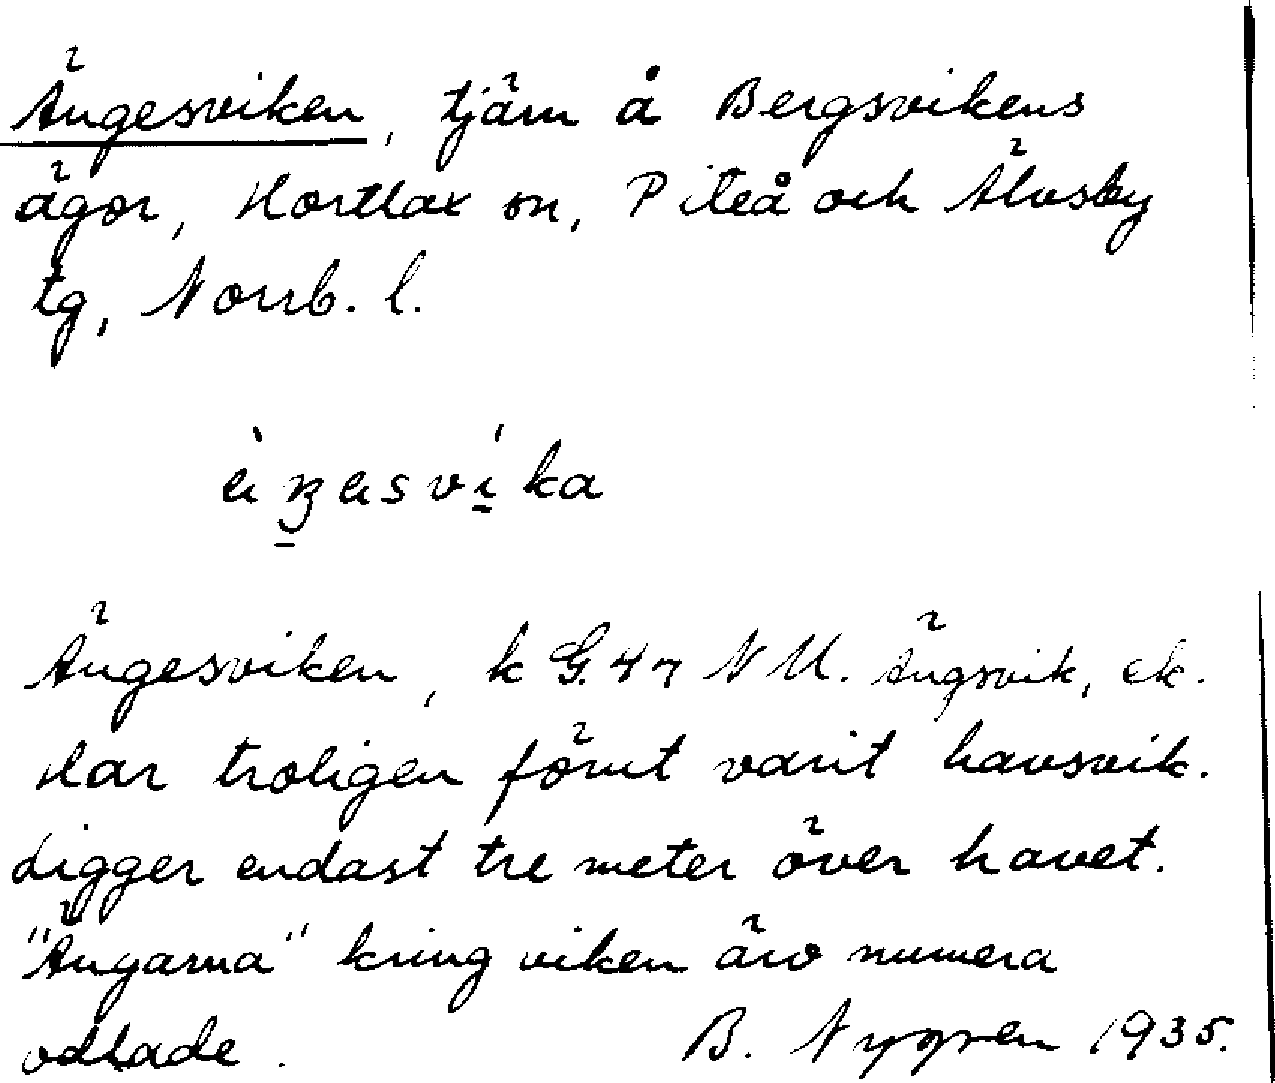 Ängesviken, tjärn å Bergsvikens
ägor, Hortlax sn, Piteå och Älvsby
tg, Norrb. l.
Ängesviken, k G. 47 N U. Ängsvik, ek.
Har troligen förut varit havsvik.
Ligger endast tre meter över havet.
"Ängarna" kring viken äro numera
odlade. B. Nygren 1935.